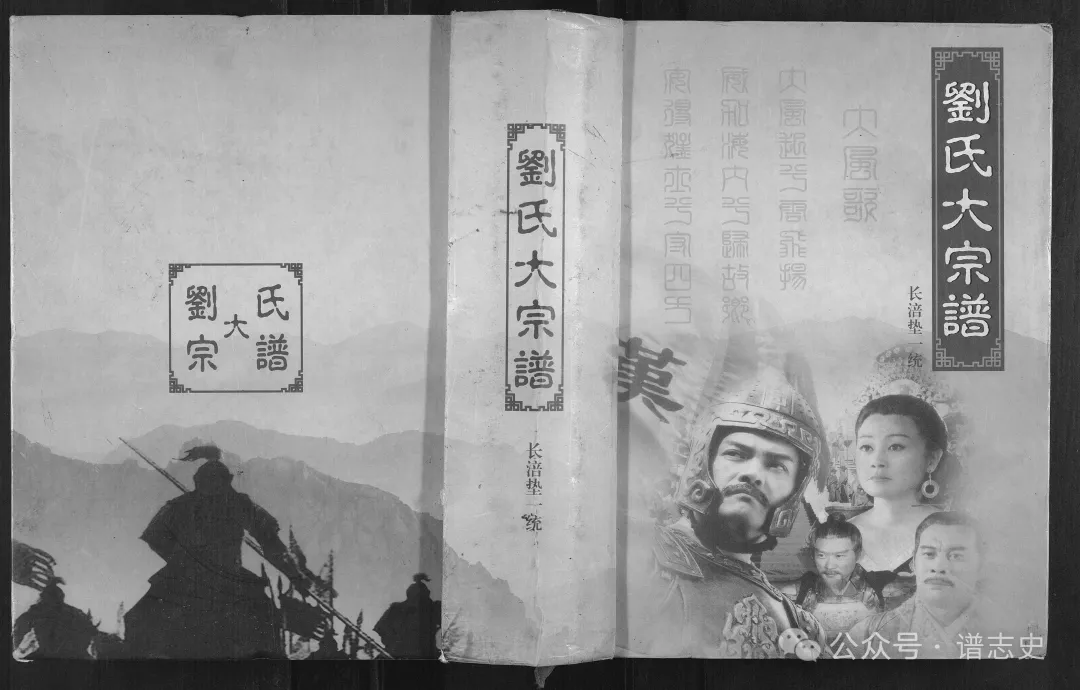 劉氏大宗譜
长涪垫一统
大風歌
大風起兮雲飛揚
威加海内兮歸故鄉
安得猛士兮守四方
漢
劉氏大宗譜
长涪垫一统
劉氏
大
宗譜
公众号·谱志史